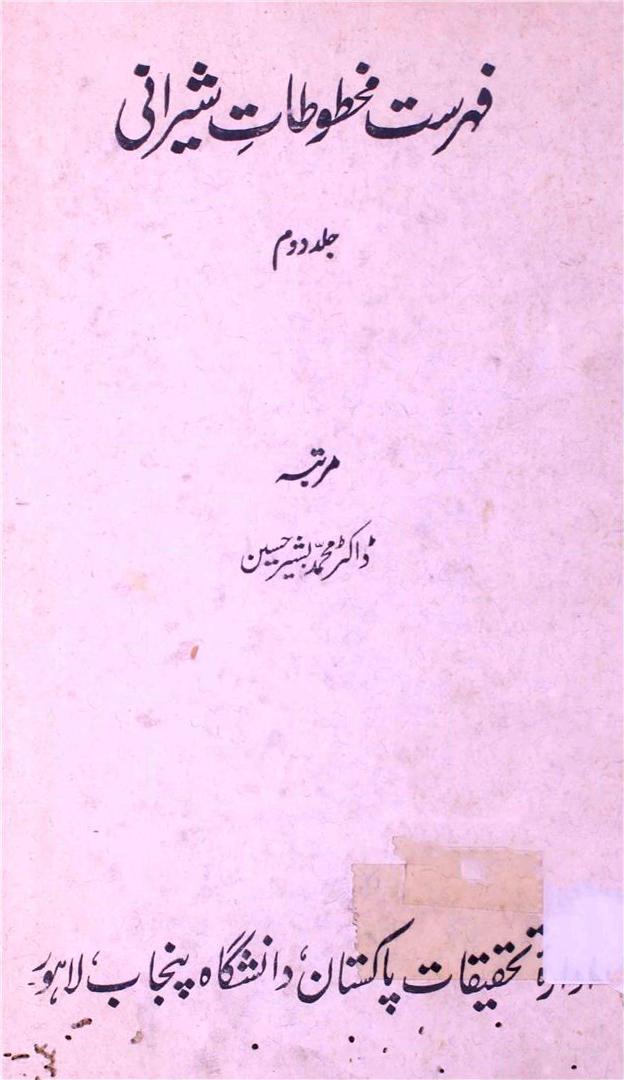 فہرست مخطوطاتِ شیرانی
جلد دوم
مرتبہ
ڈاکٹر محمّد بشیر حسین
ادارۂ تحقیقات پاکستان، دانشگاہ پنجاب، لاہور